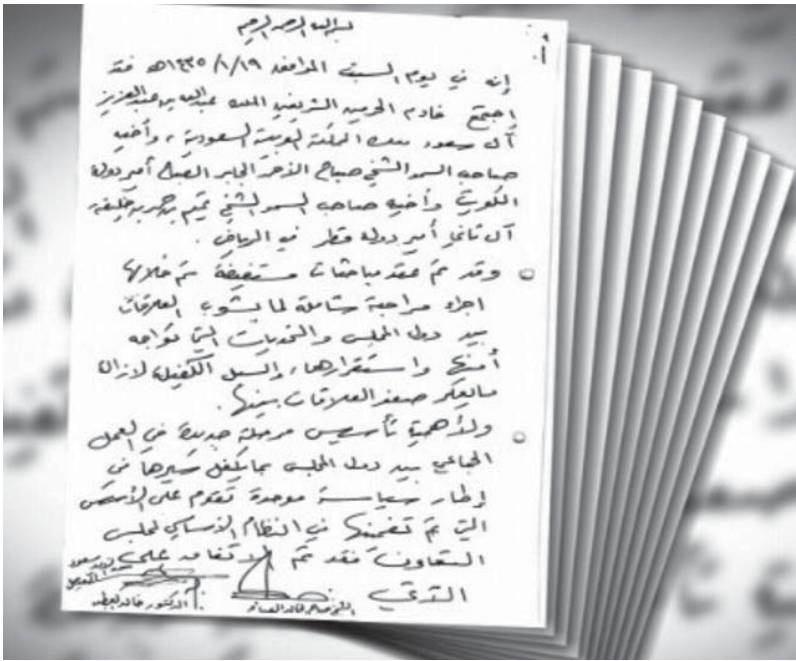 بسم الله الرحمن الرحيم
إنه في يوم السبت الموافق ١٤٣٥/١/١٩هـ فقد
إجتمع خادم الحرمين الشريفين الملك عبدالله بن عبدالعزيز
آل سعود ملك المملكة العربية السعودية، وأخيه
صاحب السمو الشيخ صباح الأحمد الجابر الصباح أمير دولة
الكويت وأخيه صاحب السمو الشيخ تميم بن حمد بن خليفه
آل ثاني أمير دولة قطر في الرياض.
وقد تم عقد مباحثات مستفيضة تم خلالها
اجراء مراجعة شاملة لما يشوب العلاقات
بين دول المجلس والتحديات التي تواجه
أمنها واستقرارها، والسبل الكفيلة لازالة
مايعكر صفو العلاقات بينها.
ولأهمية تأسيس مرحلة جديدة في العمل
الجماعي بين دول المجلس بما يكفل سيرها في
إطار سياسة موحدة تقوم على الأسس
التي تم تضمينها في النظام الأساسي لمجلس
التعاون فقد تم الاتفاق على
الآتي